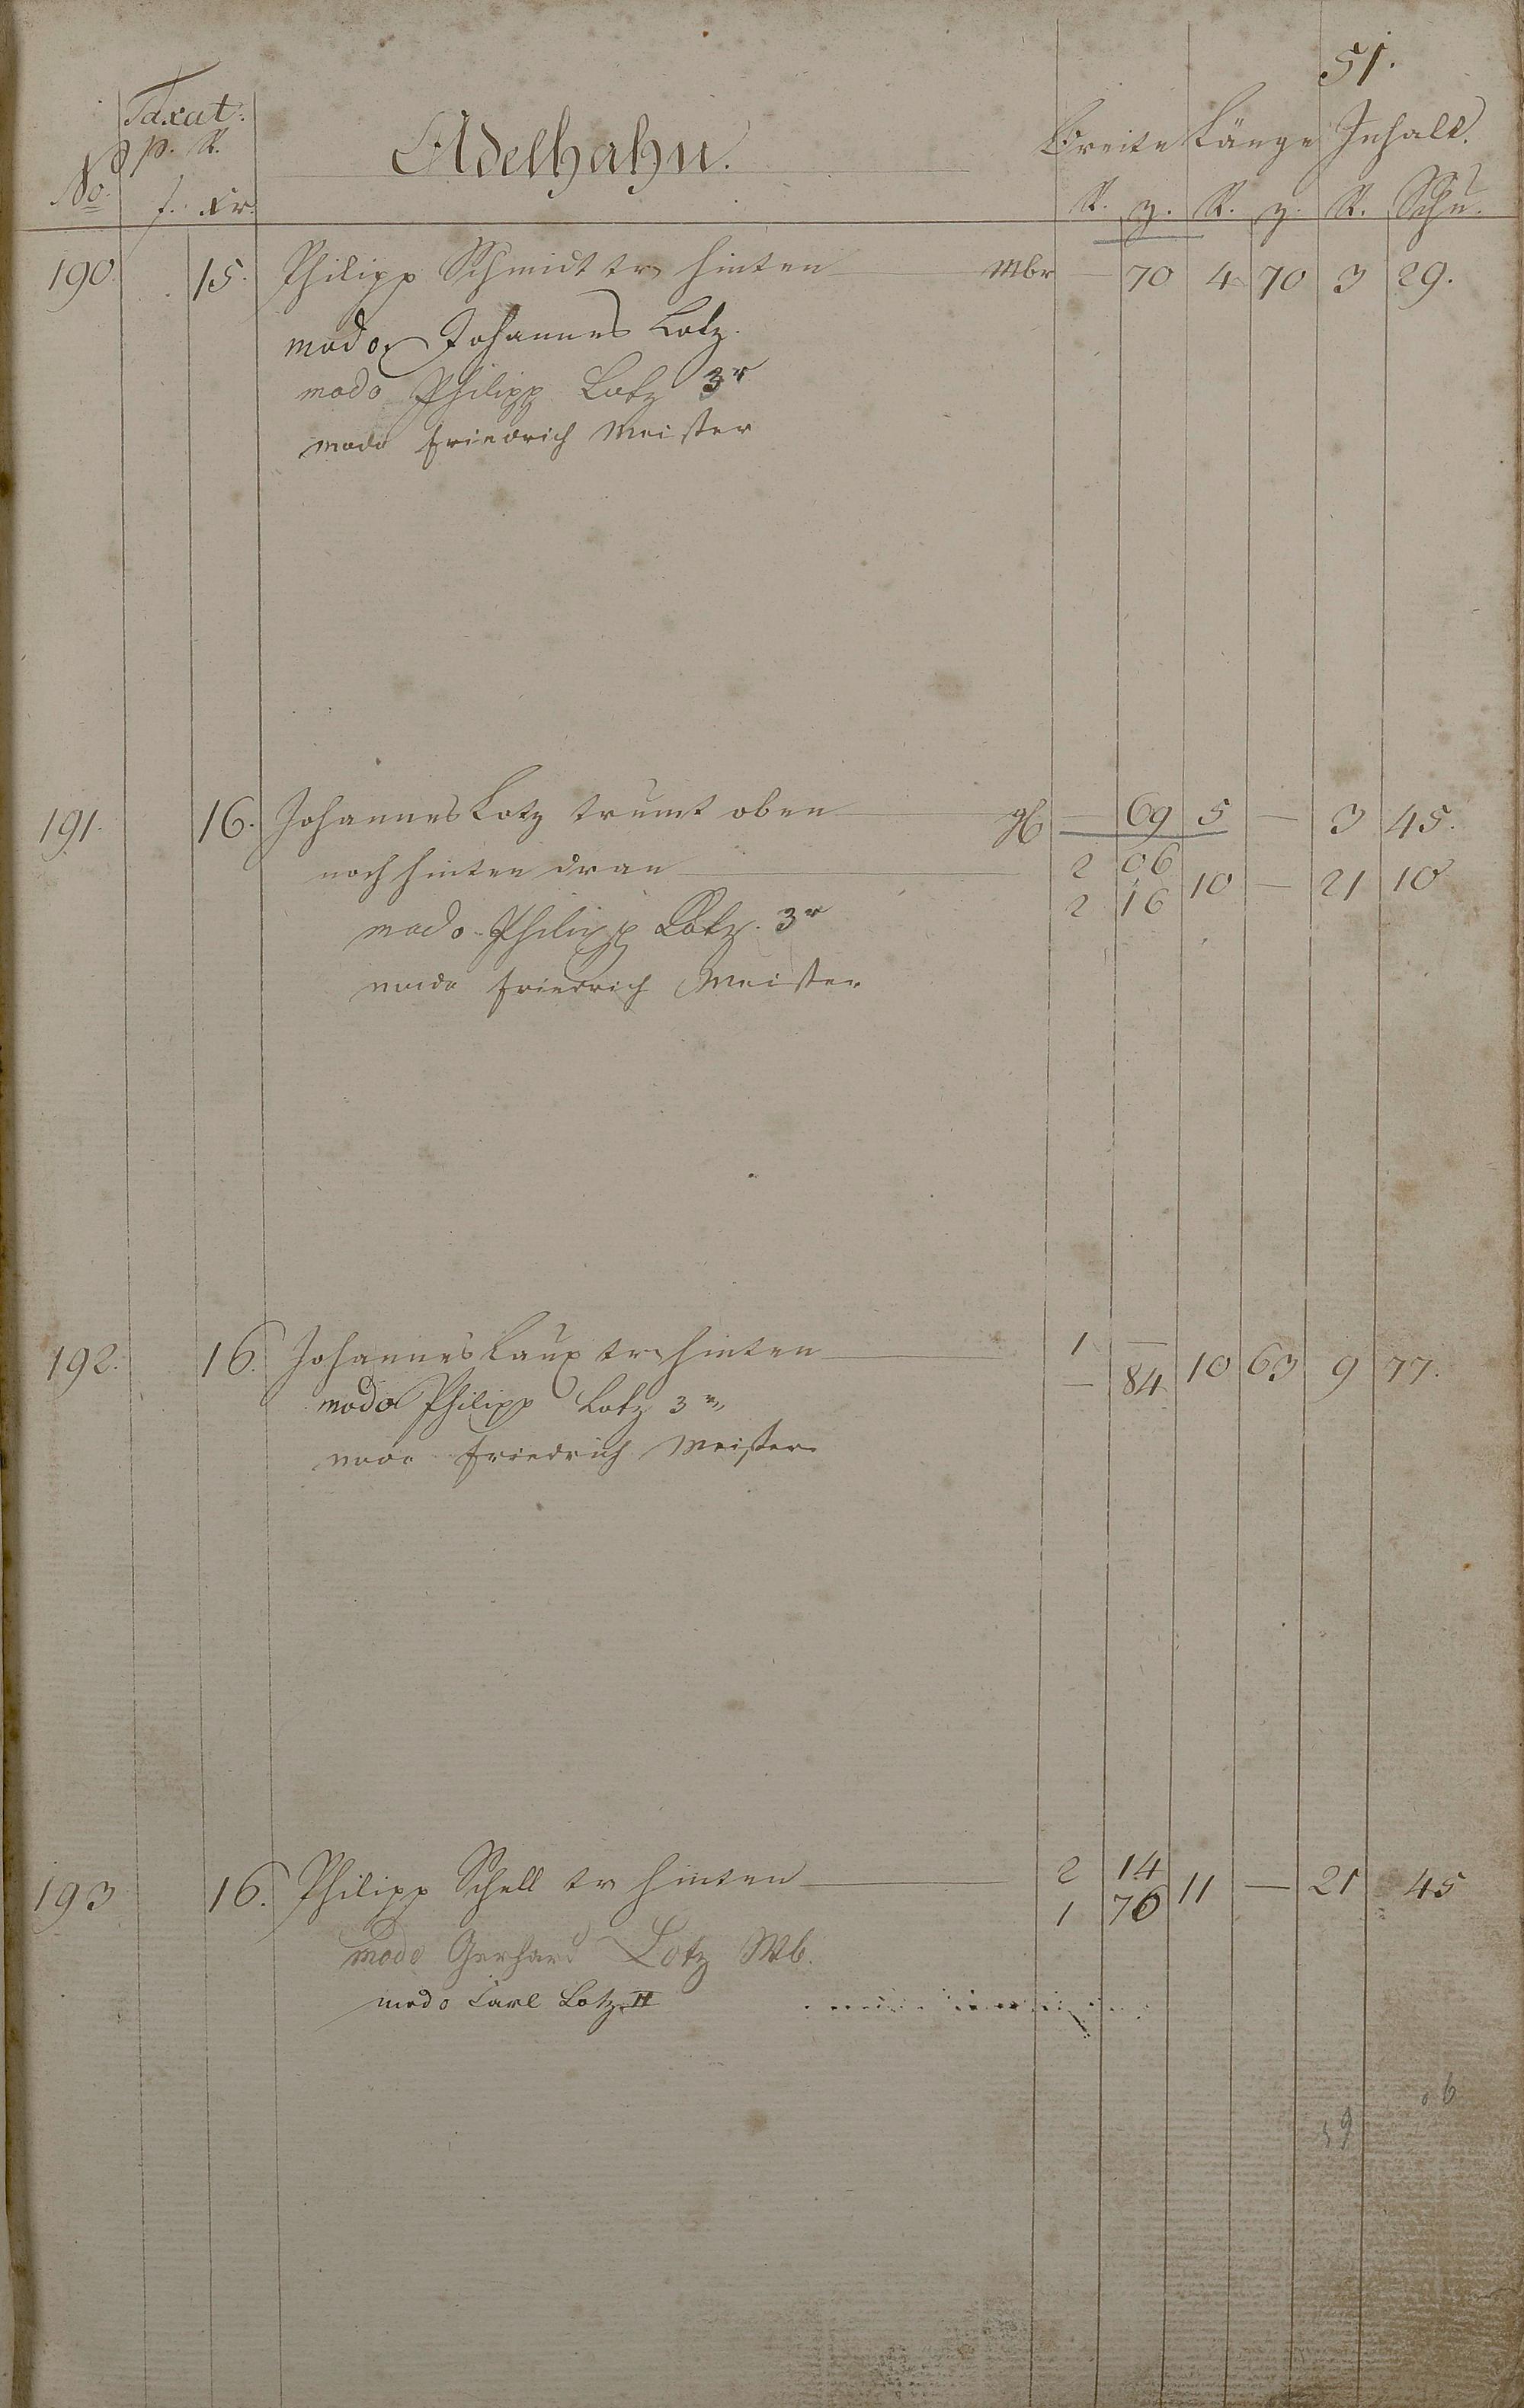 51.
Taxat:
p. R.
Adelhahn.
Breite Länge Inhalt.
No. f. xr. R. z. R. z. R. Schu.
190. 15. Philipp Schmidt tr hinten Mbr — 70 4 70 3 29.
modo Johannes Lotz.
modo Philipp Lotz 3r
modo Friedrich Meister
191. 16. Johannes Lotz trumt oben — 69 5 — 3 45.
noch hinten dran 2 06 10 — 21 10
2 16
modo Philipp Lotz. 3r
modo Friedrich Meister
192. 16. Johannes Laux tr hinten 1 — 10 63 9 77.
— 84
modo Philipp Lotz 3r
modo Friedrich Meister
193 16. Philipp Schell tr hinten 2 14 11 — 21 45
1 76
modo Gerhard Lotz Wb.
modo Carl Lotz II
06
59